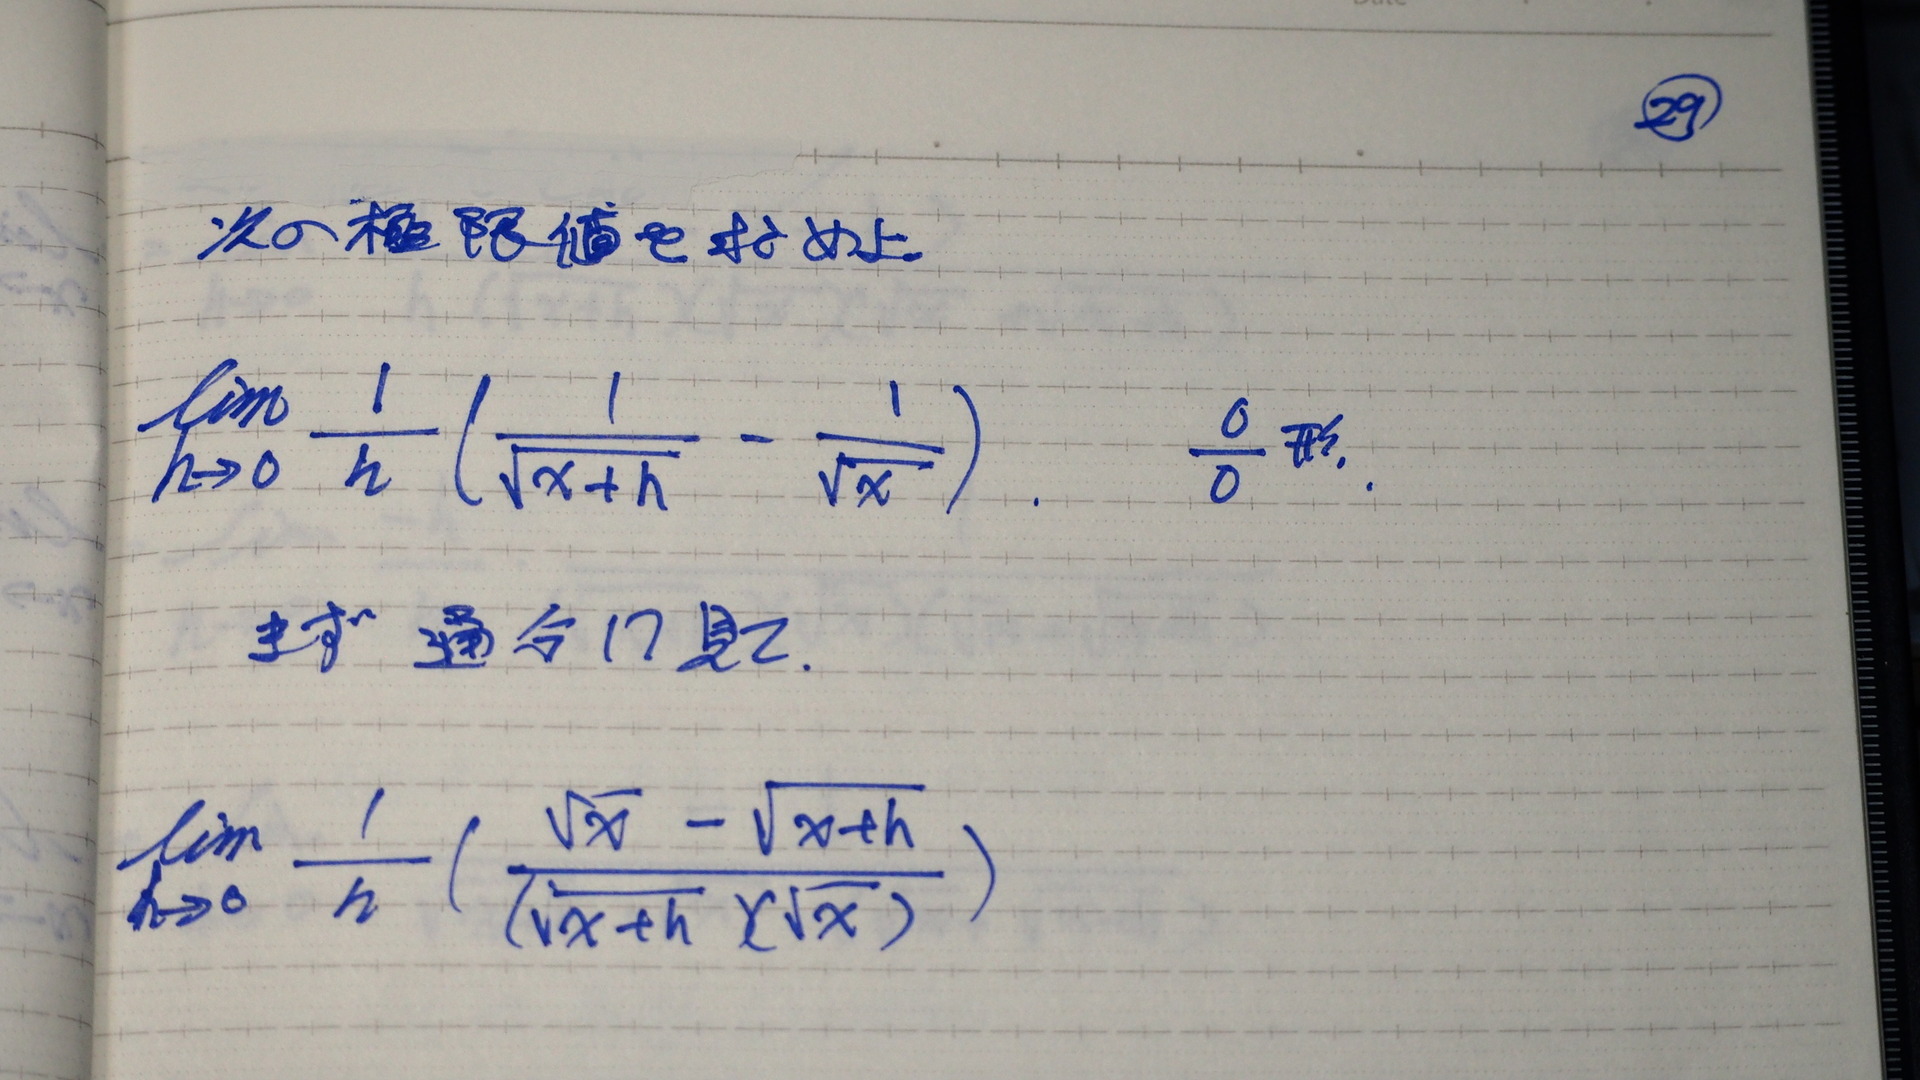 Date
29
次の極限値を求めよ.
lim h→0 1/h ( 1/√(x+h) - 1/√x ) . 0/0 形.
まず 通分して見て.
lim h→0 1/h ( (√x - √(x+h)) / (√(x+h))(√x) )